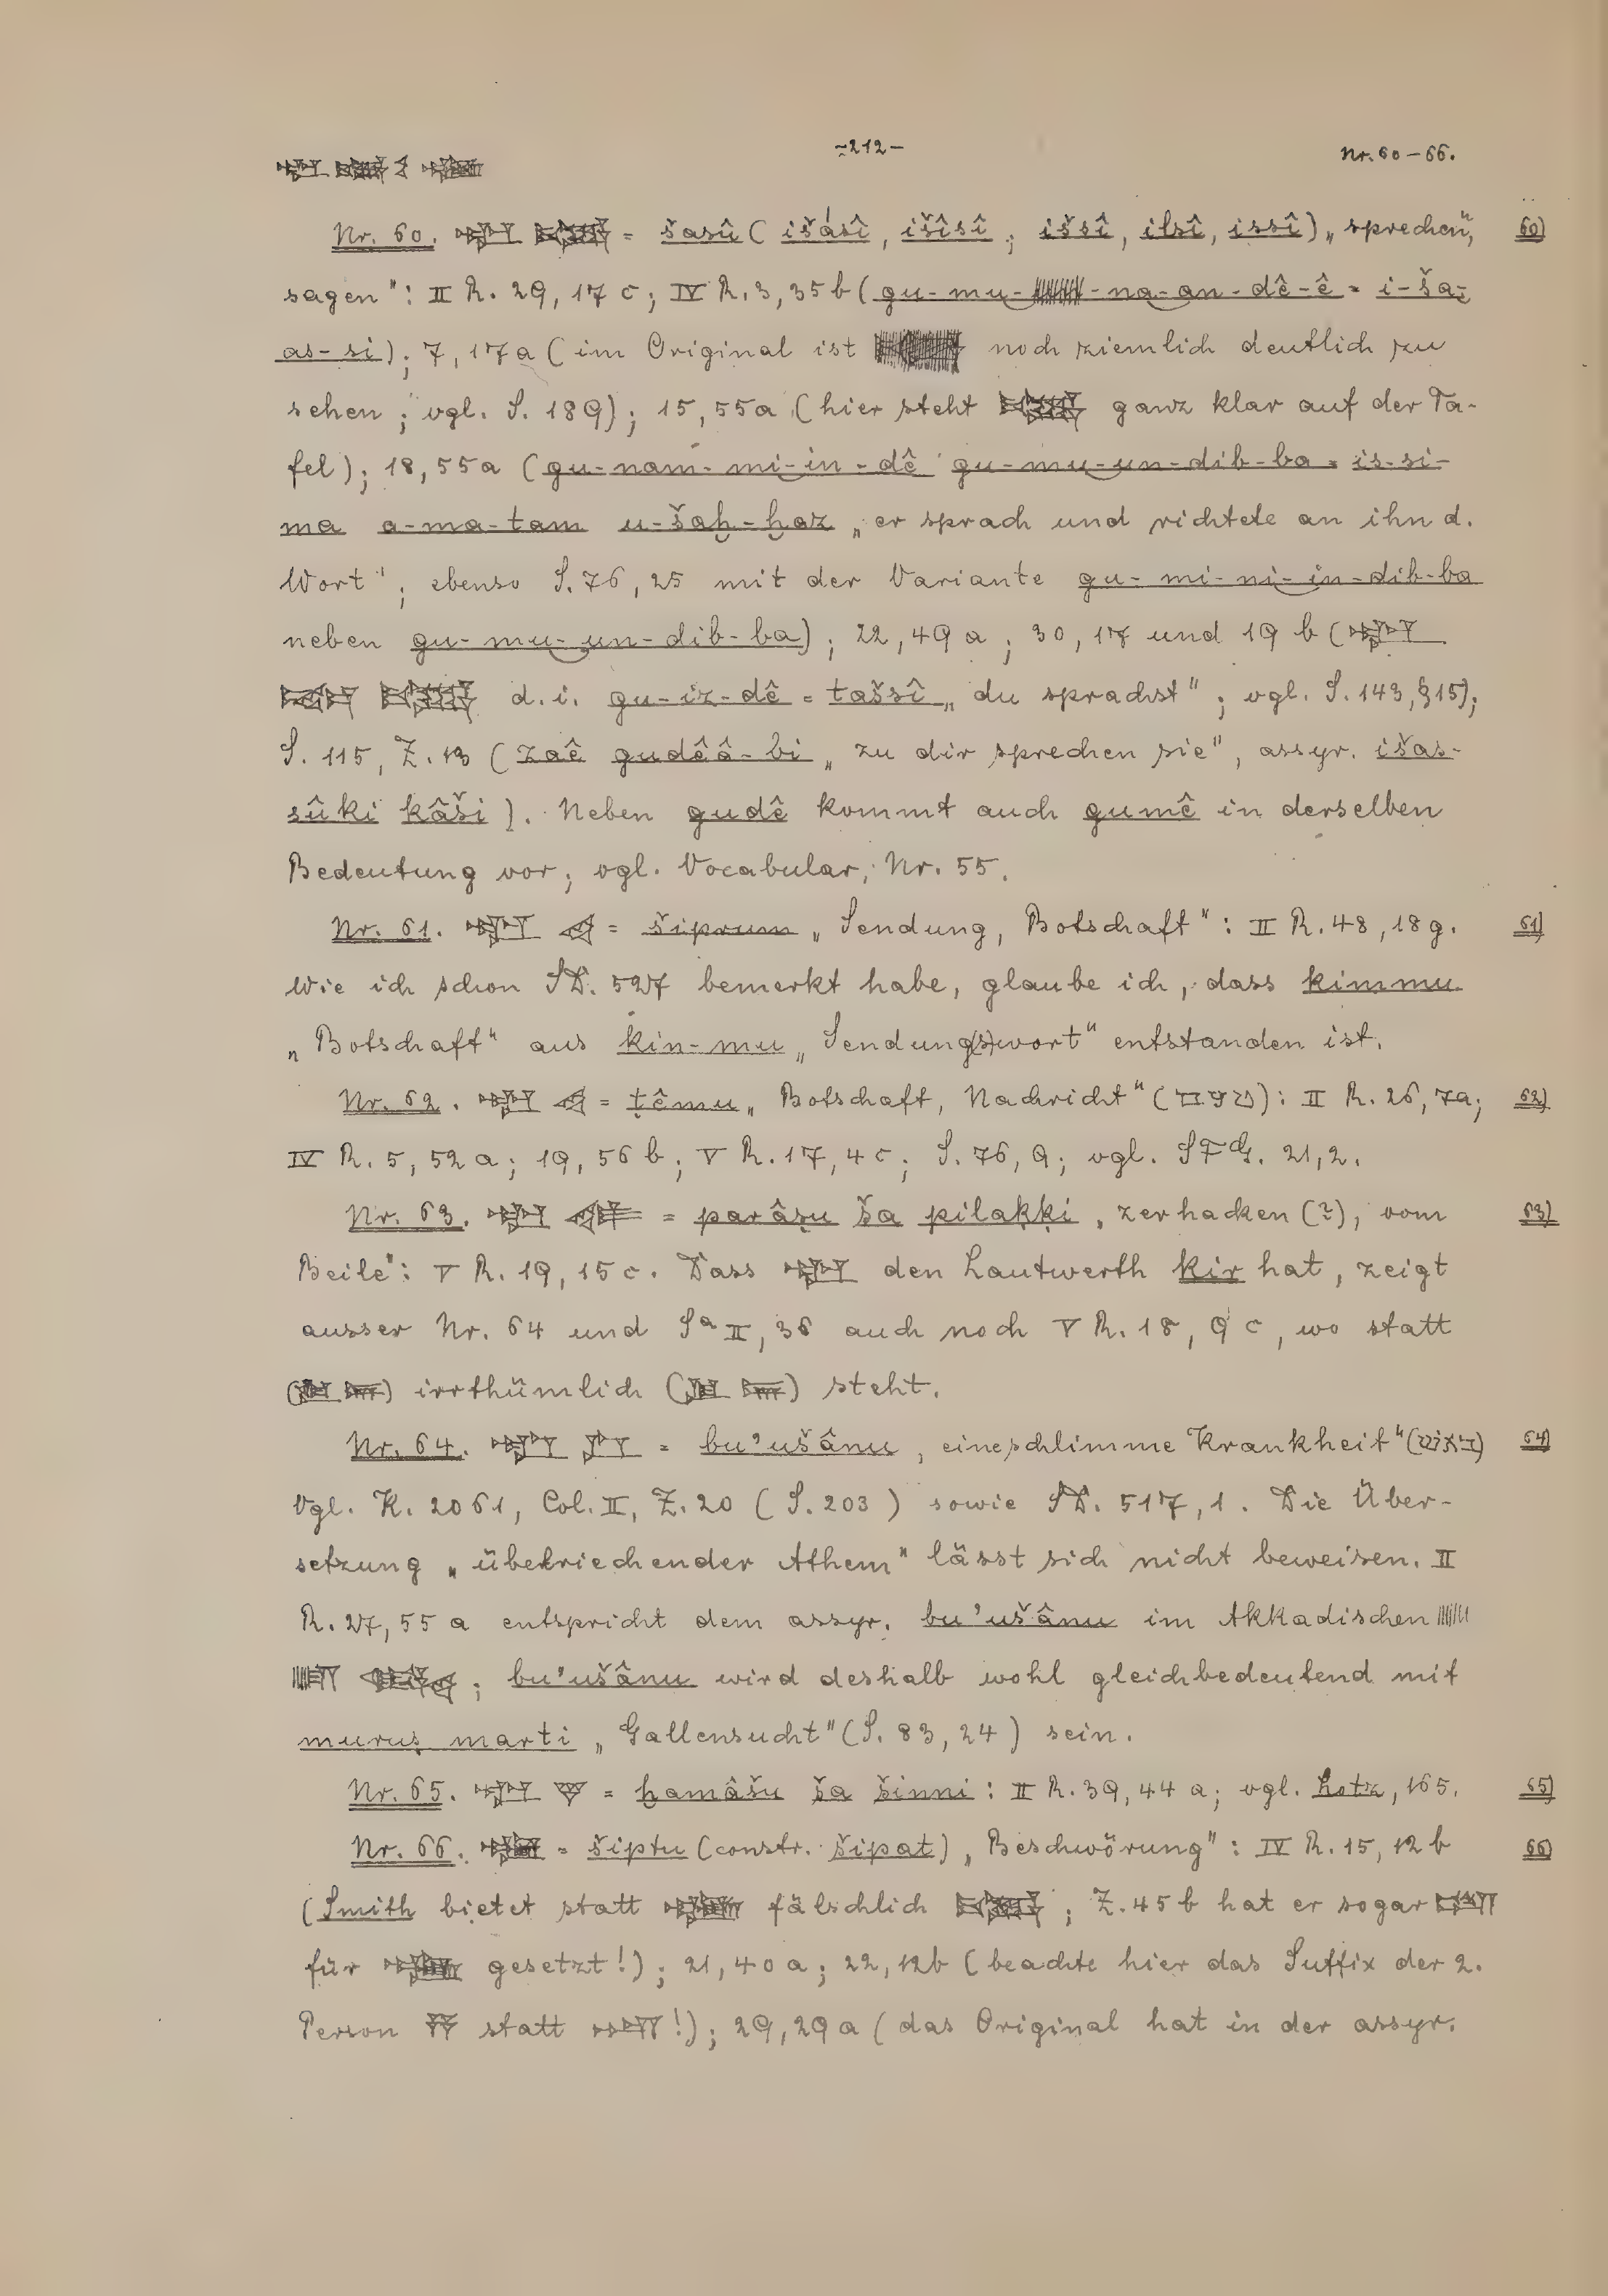 -212-
Nr. 60-66.
Nr. 60. = šasû ( išásî, išîsî; išsî, ilsî, issî) „sprechen,
60)
sagen": II R. 29, 17 c; IV R. 3, 35 b ( gu-mu- -na-an-dê-ê = i-ša-
as-si); 7, 17 a ( im Original ist noch ziemlich deutlich zu
sehen; vgl. S. 189); 15, 55a (hier steht ganz klar auf der Ta-
fel); 18, 55a ( gu-nam-mi-in-dê gu-mu-un-dib-ba = is-si-
ma a-ma-tam u-šaḫ-ḫaz „er sprach und richtete an ihn d.
Wort"; ebenso S. 76, 25 mit der Variante gu-mi-ni-in-dib-ba
neben gu-mu-un-dib-ba); 22, 49 a; 30, 17 und 19 b (
d. i. gu-iz-dê = tašsî „du sprachst"; vgl. S. 143, § 15);
S. 115, Z. 13 ( zaê gudêâ-bi „zu dir sprechen sie", assyr. išas-
sûki kâši ). Neben gudê kommt auch gumê in derselben
Bedeutung vor; vgl. Vocabular, Nr. 55.
Nr. 61. = šiprum „Sendung, Botschaft": II R. 48, 18 g.
61)
Wie ich schon SD. 527 bemerkt habe, glaube ich, dass kimmu
„Botschaft" aus kin-mu „Sendung(s)wort" entstanden ist.
Nr. 62. = ṭêmu „Botschaft, Nachricht" (טעם): II R. 26, 7a;
62)
IV R. 5, 52 a; 19, 56 b; V R. 17, 4 c; S. 76, 9; vgl. SFG. 21, 2.
Nr. 63. = parâṣu ša pilaḳḳi „zerhacken (?), vom
63)
Beile": V R. 19, 15 c. Dass den Lautwerth kir hat, zeigt
ausser Nr. 64 und Sa II, 36 auch noch V R. 18, 9 c, wo statt
( ) irrthümlich ( ) steht.
Nr. 64. = bu'ušânu, eine schlimme Krankheit" (באש)
64)
Vgl. K. 2061, Col. II, Z. 20 ( S. 203 ) sowie SD. 517, 1. Die Über-
setzung „übelriechender Athem" lässt sich nicht beweisen. II
R. 27, 55 a entspricht dem assyr. bu'ušânu im Akkadischen
; bu'ušânu wird deshalb wohl gleichbedeutend mit
muruṣ marti „Gallensucht" (S. 83, 24 ) sein.
Nr. 65. = ḫamâšu ša šinni : II R. 39, 44 a; vgl. Lotz, 165.
65)
Nr. 66. = šiptu (constr. šipat) „Beschwörung": IV R. 15, 12 b
66)
(Smith bietet statt fälschlich ; Z. 45 b hat er sogar
für gesetzt!); 21, 40 a; 22, 12b ( beachte hier das Suffix der 2.
Person statt !); 29, 29 a ( das Original hat in der assyr.